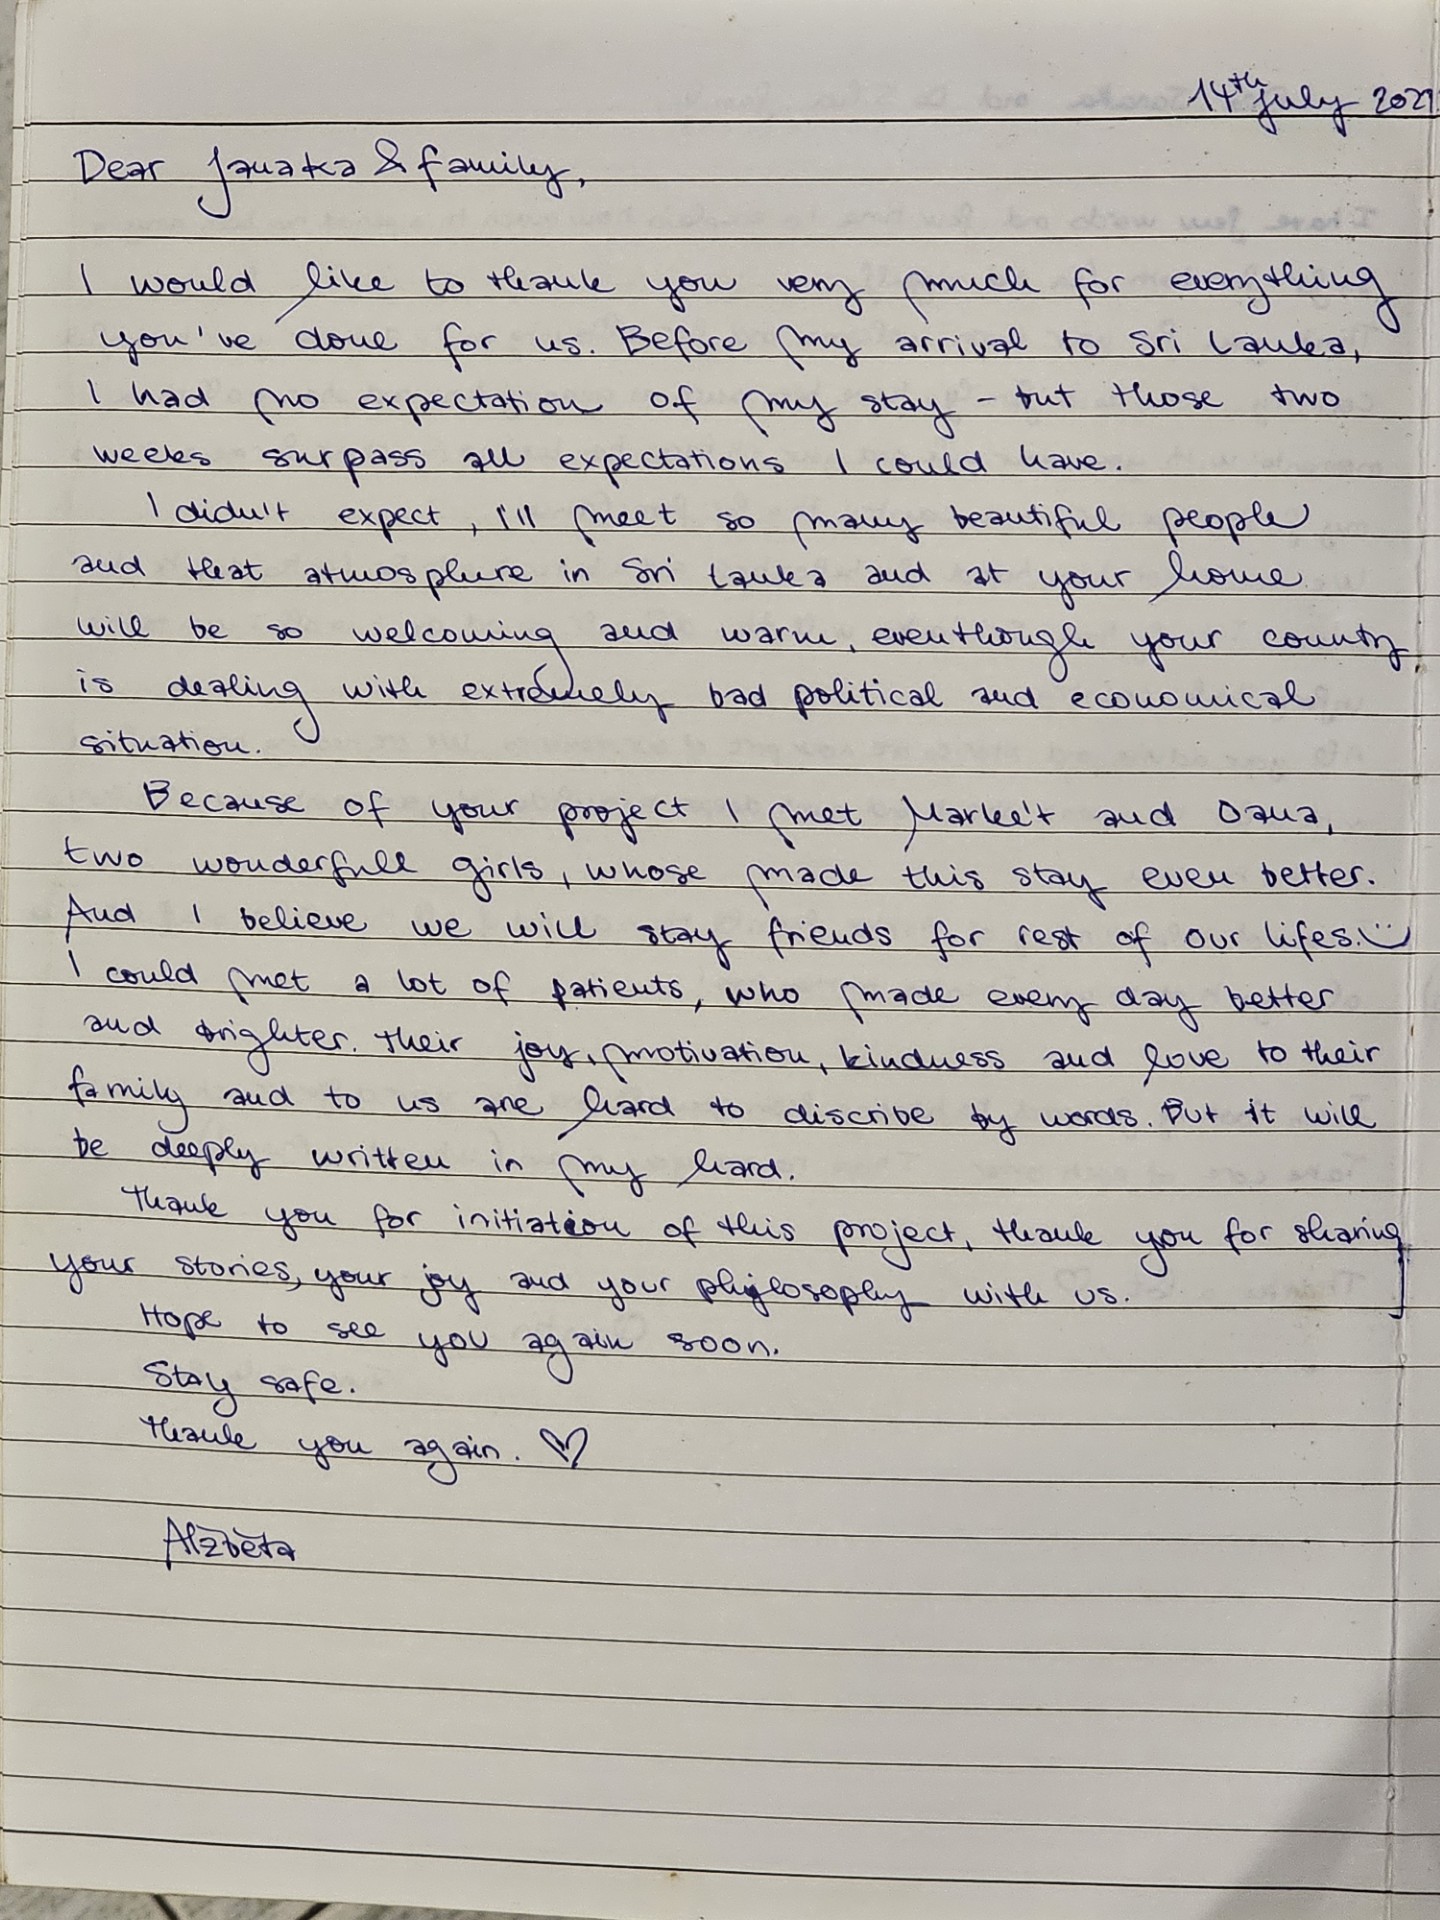 14th July
Dear Janaka & family,
I would like to thank you very much for everything
you've done for us. Before my arrival to Sri Lanka,
I had no expectation of my stay - but those two
weeks surpass all expectations I could have.
I didn't expect, I'll meet so many beautiful people
and that atmosphere in Sri Lanka and at your home
will be so welcoming and warm, eventhough your county
is dealing with extremely bad political and economical
situation.
Because of your project I met Markét and Dana,
two wonderfull girls, whose made this stay even better.
And I believe we will stay friends for rest of our lifes. :)
I could met a lot of patients, who made every day better
and brighter. Their joy, motivation, kindness and love to their
family and to us are hard to discribe by words. But it will
be deeply written in my hard.
Thank you for initiation of this project, thank you for sharing
your stories, your joy and your phylosophy with us.
Hope to see you again soon.
Stay safe.
Thank you again. ♡
Alžběta